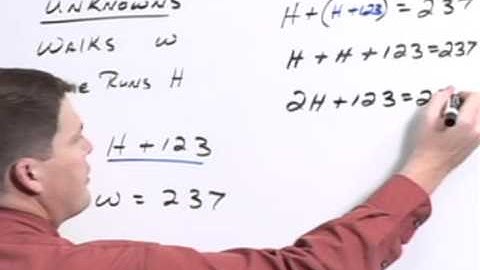 UNKNOWNS
WALKS W
RUNS H
H + 123
W = 237
H + (H + 123) = 237
H + H + 123 = 237
2H + 123 = 2